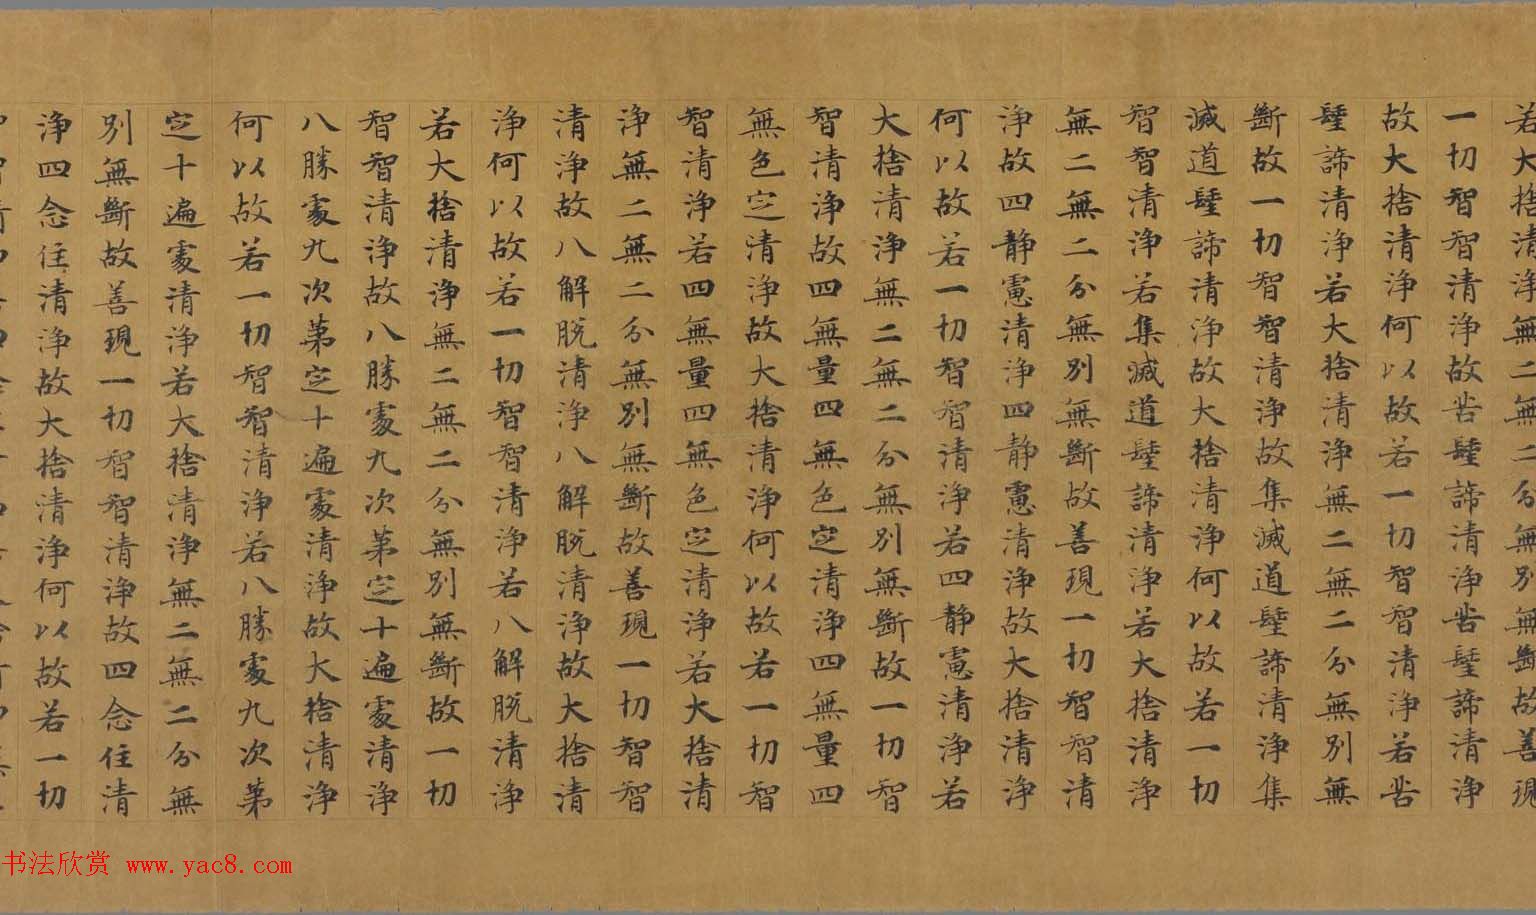 若大捨清淨無二無二分無別無斷故善現
一切智智清淨故苦聖諦清淨苦聖諦清淨
故大捨清淨何以故若一切智智清淨若苦
聖諦清淨若大捨清淨無二無二分無別無
斷故一切智智清淨故集滅道聖諦清淨集
滅道聖諦清淨故大捨清淨何以故若一切
智智清淨若集滅道聖諦清淨若大捨清淨
無二無二分無別無斷故善現一切智智清
淨故四靜慮清淨四靜慮清淨故大捨清淨
何以故若一切智智清淨若四靜慮清淨若
大捨清淨無二無二分無別無斷故一切智
智清淨故四無量四無色定清淨四無量四
無色定清淨故大捨清淨何以故若一切智
智清淨若四無量四無色定清淨若大捨清
淨無二無二分無別無斷故善現一切智智
清淨故八解脫清淨八解脫清淨故大捨清
淨何以故若一切智智清淨若八解脫清淨
若大捨清淨無二無二分無別無斷故一切
智智清淨故八勝處九次第定十遍處清淨
八勝處九次第定十遍處清淨故大捨清淨
何以故若一切智智清淨若八勝處九次第
定十遍處清淨若大捨清淨無二無二分無
別無斷故善現一切智智清淨故四念住清
淨四念住清淨故大捨清淨何以故若一切
书法欣赏 www.yac8.com